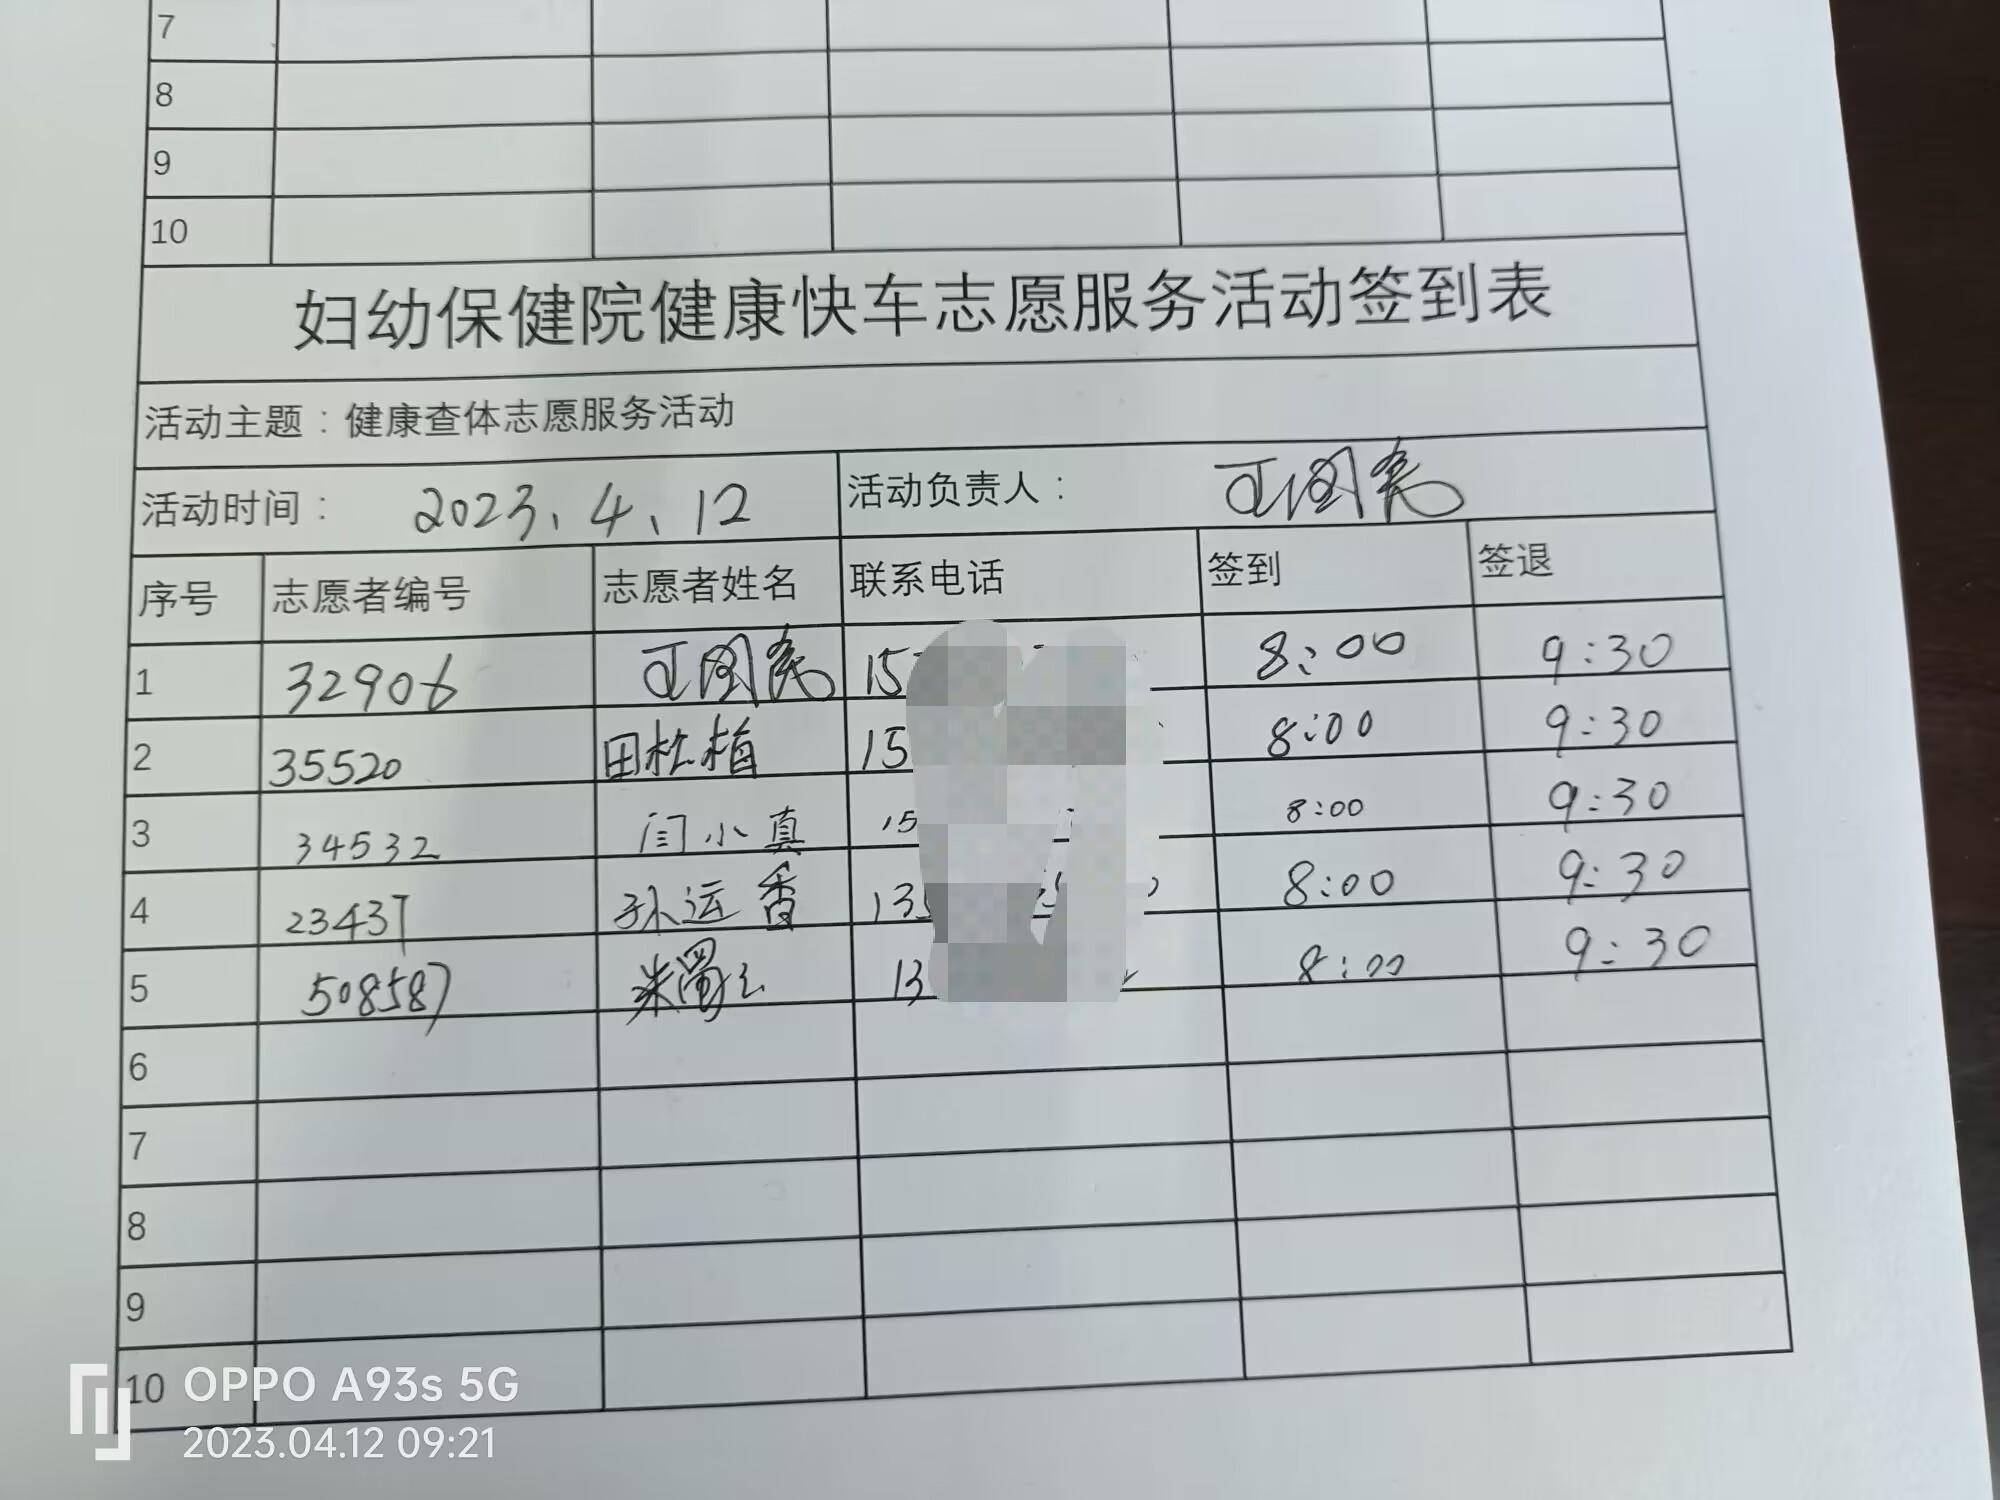 7
8
9
10
妇幼保健院健康快车志愿服务活动签到表
活动主题：健康查体志愿服务活动
活动时间： 2023、4、12 活动负责人： 王国
序号 志愿者编号 志愿者姓名 联系电话 签到 签退
1 32906 王国 15 8:00 9:30
2 35520 田 梅 15 8:00 9:30
3 34532 闫小真 15 8:00 9:30
4 23437 孙运香 13 8:00 9:30
5 508587 朱 13 8:00 9:30
6
7
8
9
10
OPPO A93s 5G
2023.04.12 09:21